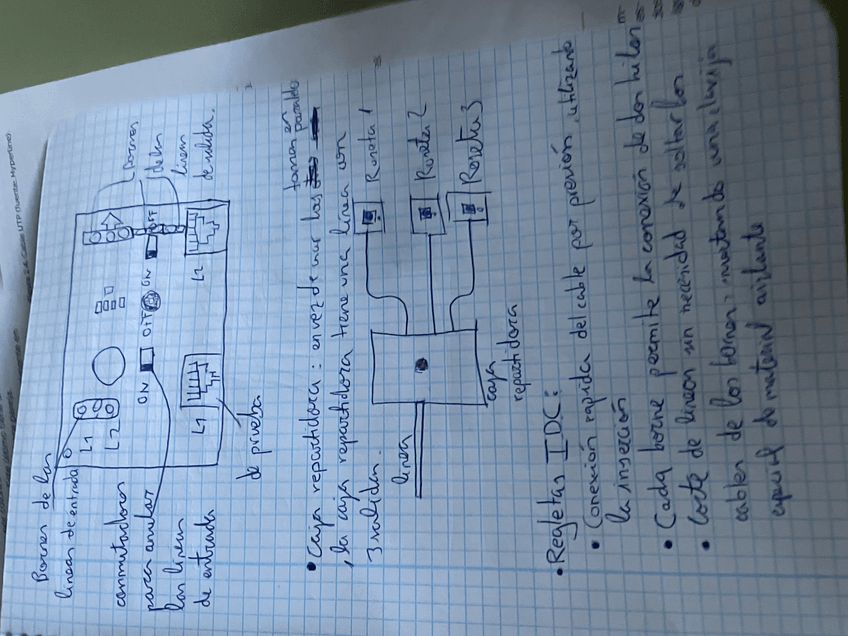 Bornes de las
lineas de entrada
L1
L2
ON OFF
ON OFF
L1
L2
bornes
de las
lineas
de salida.
conmutadores
para anular
las lineas
de entrada
de prueba
• Caja repartidora: en vez de usar las tomas en paralelo
, la caja repartidora tiene una línea con
3 salidas.
linea
caja
repartidora
Roseta 1
Roseta 2
Roseta 3
• Regletas IDC:
• Conexión rápida del cable por presión, utilizando
la inserción
• Cada borne permite la conexión de dos hilos
• Corte de lineas sin necesidad de soltar los
cables de los bornes: insertando una clavija
especial de material aislante
Cable UTP (Fuente: